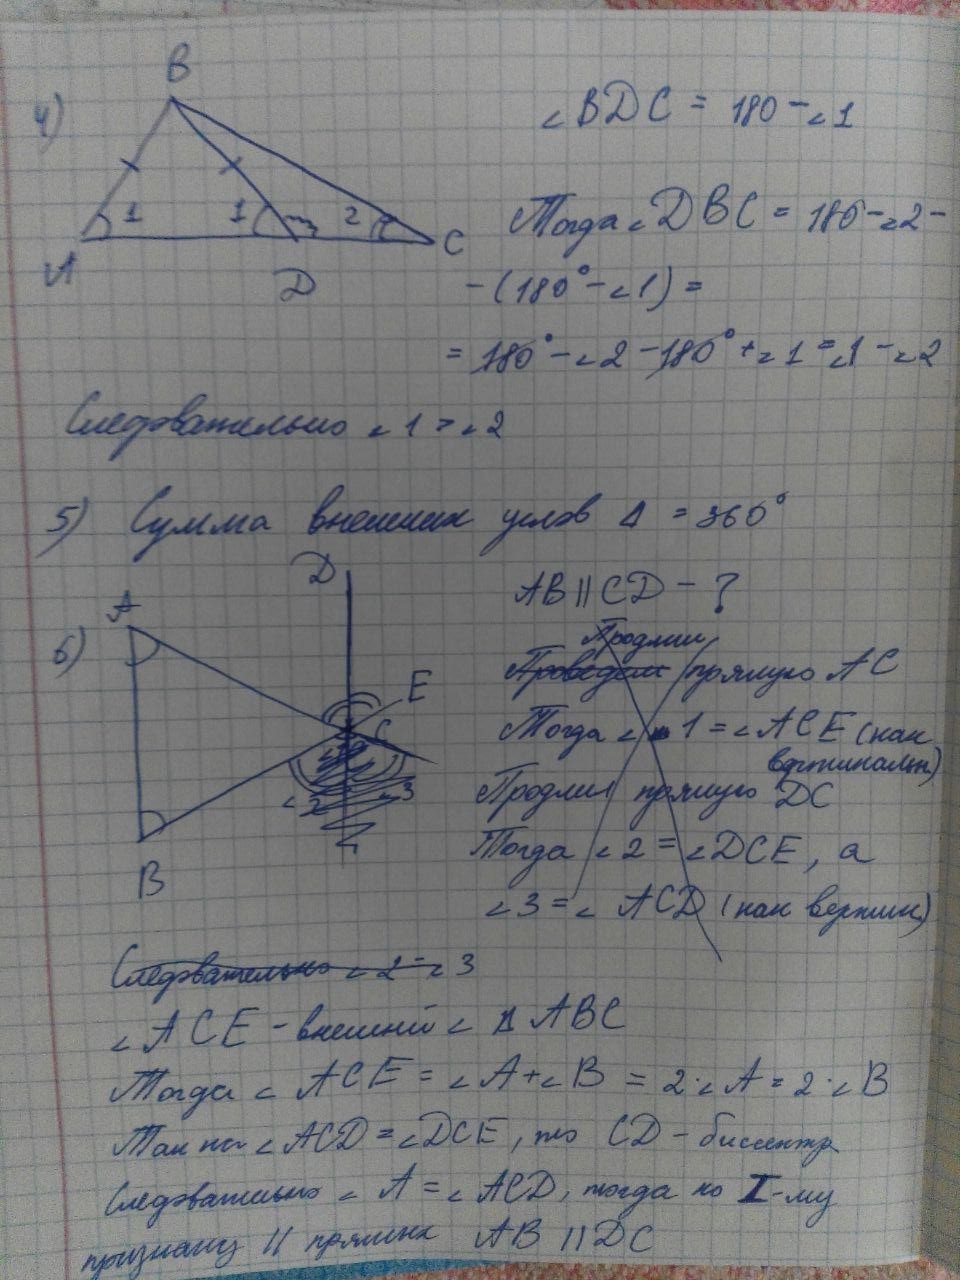 4)
B
1 1 2
A D C
∠BDC = 180 - ∠1
Тогда ∠DBC = 180 - ∠2 -
- (180° - ∠1) =
= 180° - ∠2 - 180° + ∠1 = ∠1 - ∠2
Следовательно ∠1 > ∠2
5) Сумма внешних углов Δ = 360°
6)
D
A
E
C
∠2 3
B
AB || CD - ?
Продлим
Проведем прямую AC
Тогда ∠1 = ∠ACE (как
вертикальн)
Продлим прямую DC
Тогда ∠2 = ∠DCE, а
∠3 = ∠ACD (как вертик)
Следовательно ∠2 = ∠3
∠ACE - внешний ∠ Δ ABC
Тогда ∠ACE = ∠A + ∠B = 2·∠A = 2·∠B
Так как ∠ACD = ∠DCE, то CD - биссектр
Следовательно ∠A = ∠ACD, тогда по I-му
признаку || прямых AB || DC